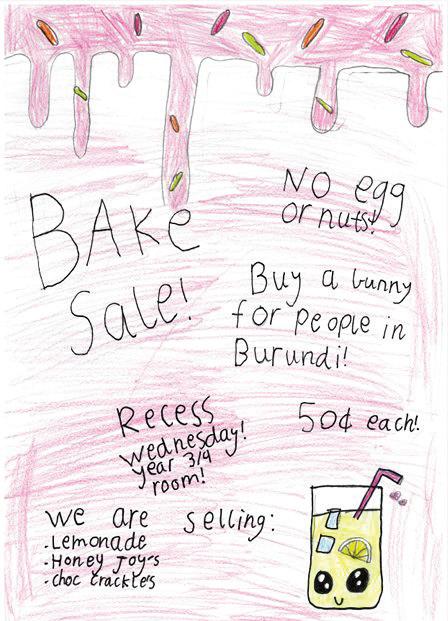 NO egg
or nuts!
BAKe
Sale!
Buy a bunny
for people in
Burundi!
Recess
wednesday!
year 3/4
room!
50¢ each!
we are selling:
-Lemonade
-Honey Joy's
-choc crackle's